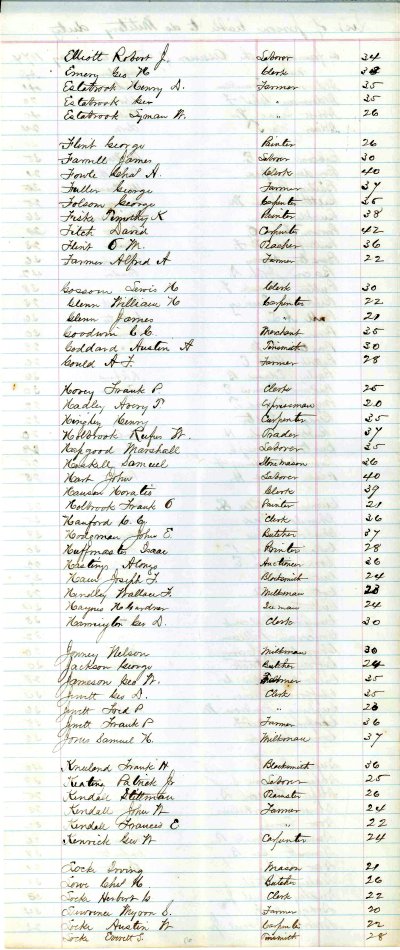 Elliott Robert J. Laborer 34
Emery Geo H Clerk 38
Estabrook Henry D. Farmer 35
Estabrook Geo " 35
Estabrook Lyman W. " 26
Flint George Painter 26
Farmell James Laborer 30
Fowle Chas A. Clerk 40
Fuller George Farmer 37
Folsom George Carpenter 35
Fiske Timothy K Painter 38
Fitch David Carpenter 42
Flint O M. Teacher 36
Farmer Alfred A Farmer 22
Gossom Lewis H Clerk 30
Glenn William H Carpenter 22
Glenn James " 21
Goodwin C. C. Merchant 35
Goddard Austin A Tinsmith 30
Gould A F. Farmer 28
Hovey Frank P Clerk 25
Hadley Avery T. Expressman 20
Hinghy Henry Carpenter 35
Holbrook Rufus W. Trader 37
Hapgood Marshall Laborer 35
Haskell Samuel Stone mason 36
Hart John Laborer 40
Hanson Horatio Clerk 39
Holbrook Frank O Painter 21
Hanford C. G. Clerk 36
Hodgman John E. Butcher 37
Huffmaster Isaac Printer 28
Hastings Alonzo Auctioneer 36
Haul Joseph F. Blacksmith 24
Handley Wallace F. Milkman 23
Haynes H Gardner Ice man 24
Harrington Geo D. Clerk 30
Jenney Nelson Milkman 30
Jackson George Butcher 24
Jameson Geo W. 35
Jewett Geo D. Clerk 35
Jewett Ford P " 23
Jewett Frank P Farmer 36
Jones Samuel H. Milkman 37
Kneeland Frank H. Blacksmith 36
Keating Patrick Jr Laborer 25
Kendall Stillman Teamster 26
Kendall John W Farmer 24
Kendall Francis E " 22
Kenrick Geo W Carpenter 24
Locke Irving Mason 21
Lowe Chas H Butcher 26
Locke Herbert G Clerk 22
Lawrence Myron S. Farmer 20
Locke Austin W Carpenter 22
Locke Everett S. Tinsmith 28